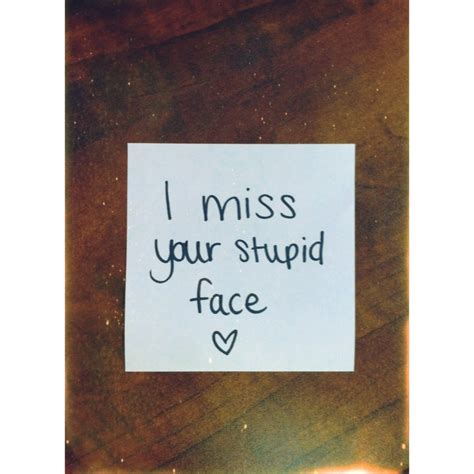 I miss
your stupid
face
♡